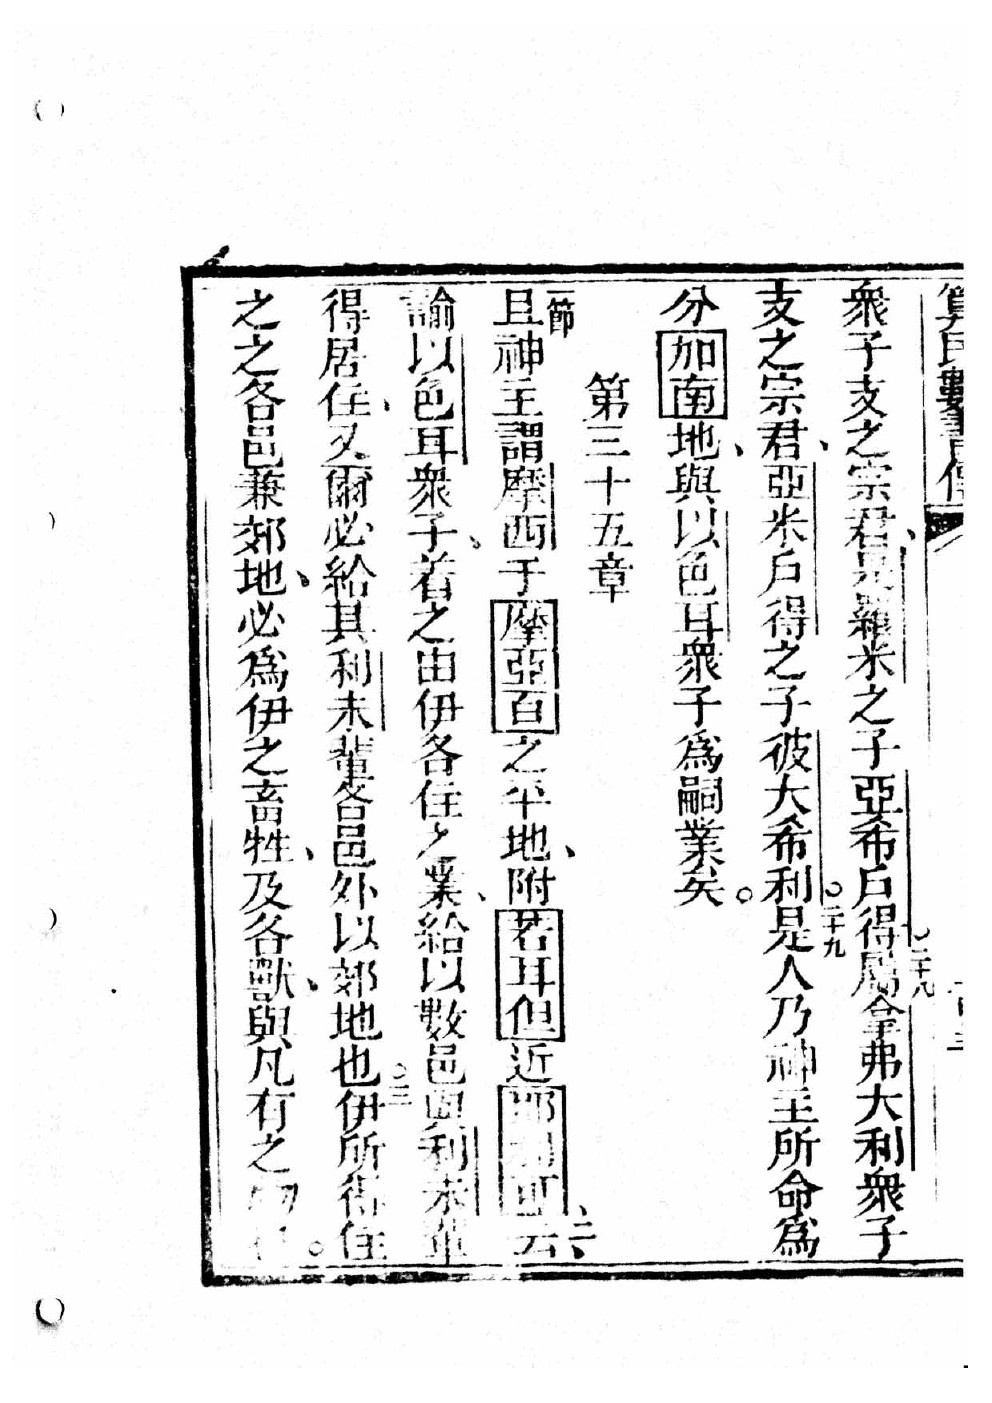 算民數書傳
衆子支之宗君、是羅米之子亞希戶得屬拿弗大利衆子
二十八
支之宗君、亞米戶得之子彼大希利。是人乃神主所命爲
二十九
分加南地、與以色耳衆子爲嗣業矣。
第三十五章
一節
且神主謂摩西于摩亞百之平地、附若耳但近耶利可云、
二
諭以色耳衆子、着之由伊各住之業、給以數邑與利未輩
得居住、又爾必給其利未輩各邑外以郊地也。伊所得住
三
之之各邑兼郊地、必爲伊之畜牲、及各獸、與凡有之物